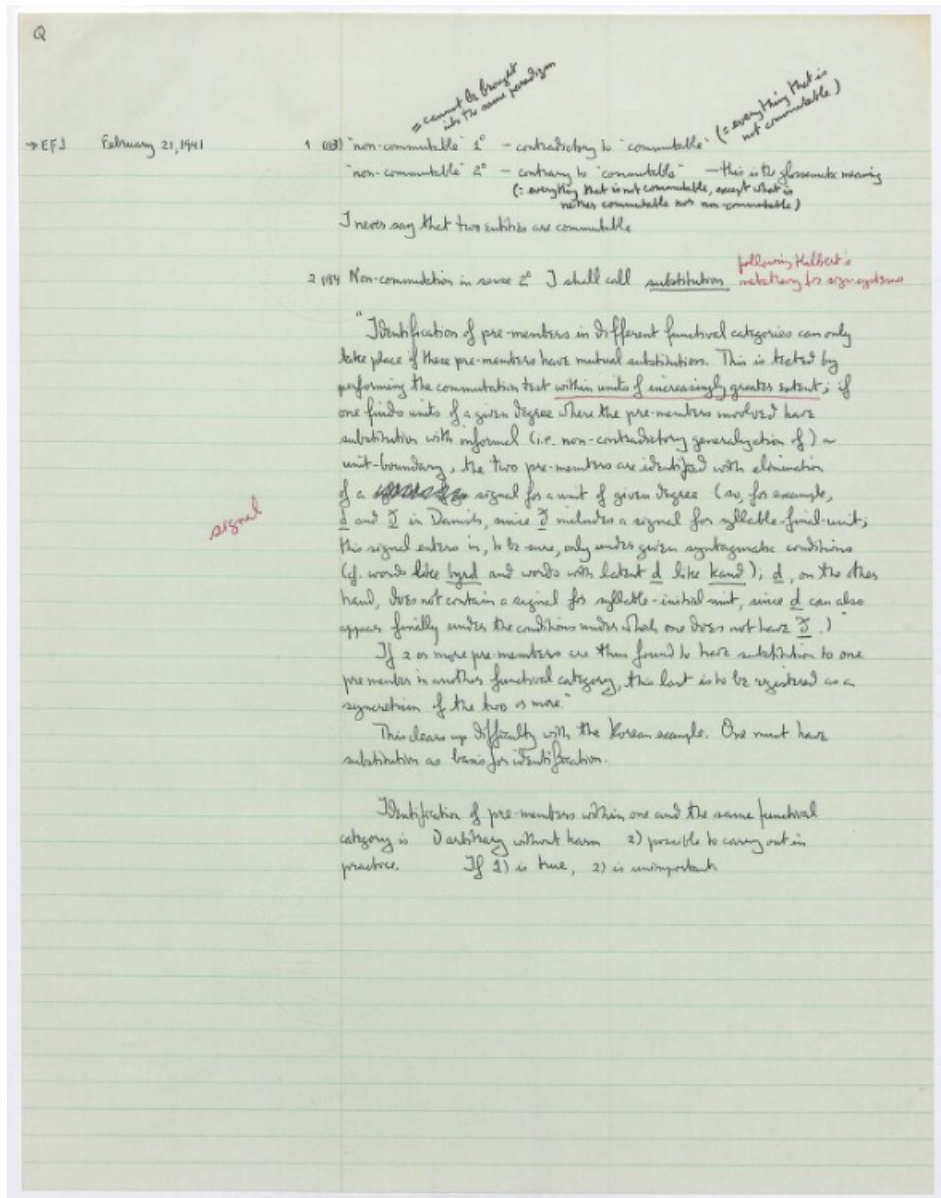 Q
= cannot be brought
into the same paradigm
(= everything that is
not commutable)
→ EFJ February 21, 1941 1 "non-commutable" 1° – contradictory to "commutable"
"non-commutable" 2° – contrary to "commutable" – this is the glossematic meaning
(= everything that is not commutable, except what is
neither commutable nor non-commutable)
I never say that two entities are commutable
2 Non-commutation in sense 2° I shall call substitution
following Hilbert's
metatheory for sign systems
"Identification of pre-members in different functival categories can only
take place if these pre-members have mutual substitution. This is tested by
performing the commutation test within units of increasingly greater extent; if
one finds units of a given degree where the pre-members involved have
substitution with informal (i.e. non-contradictory generalization of) a
unit-boundary, the two pre-members are identified with elimination
of a signal for a unit of given degree (so, for example,
d and in Danish, since includes a signal for syllable-final-unit;
this signal enters in, to be sure, only under given syntagmatic conditions
(cf. words like byrd and words with latent d like kand); d, on the other
hand, does not contain a signal for syllable-initial unit, since d can also
appear finally under the conditions under which one does not have .)"
signal
If 2 or more pre-members are thus found to have substitution to one
premember in another functival category, this last is to be registered as a
syncretism of the two or more."
This clears up difficulty with the Korean example. One must have
substitution as basis for identification.
Identification of pre-members within one and the same functival
category is 1) arbitrary without harm 2) possible to carry out in
practice. If 1) is true, 2) is unimportant